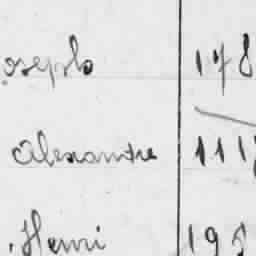 oseph 178
Alexandre 111
Henri 195